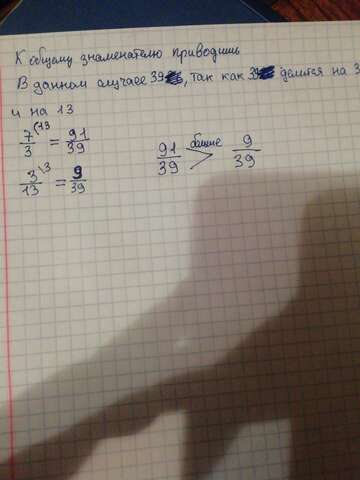 К общему знаменателю приводишь
В данном случае 39, так как 39 делится на 3
и на 13
7/3 \13 = 91/39
91/39 больше > 9/39
3/13 \3 = 9/39